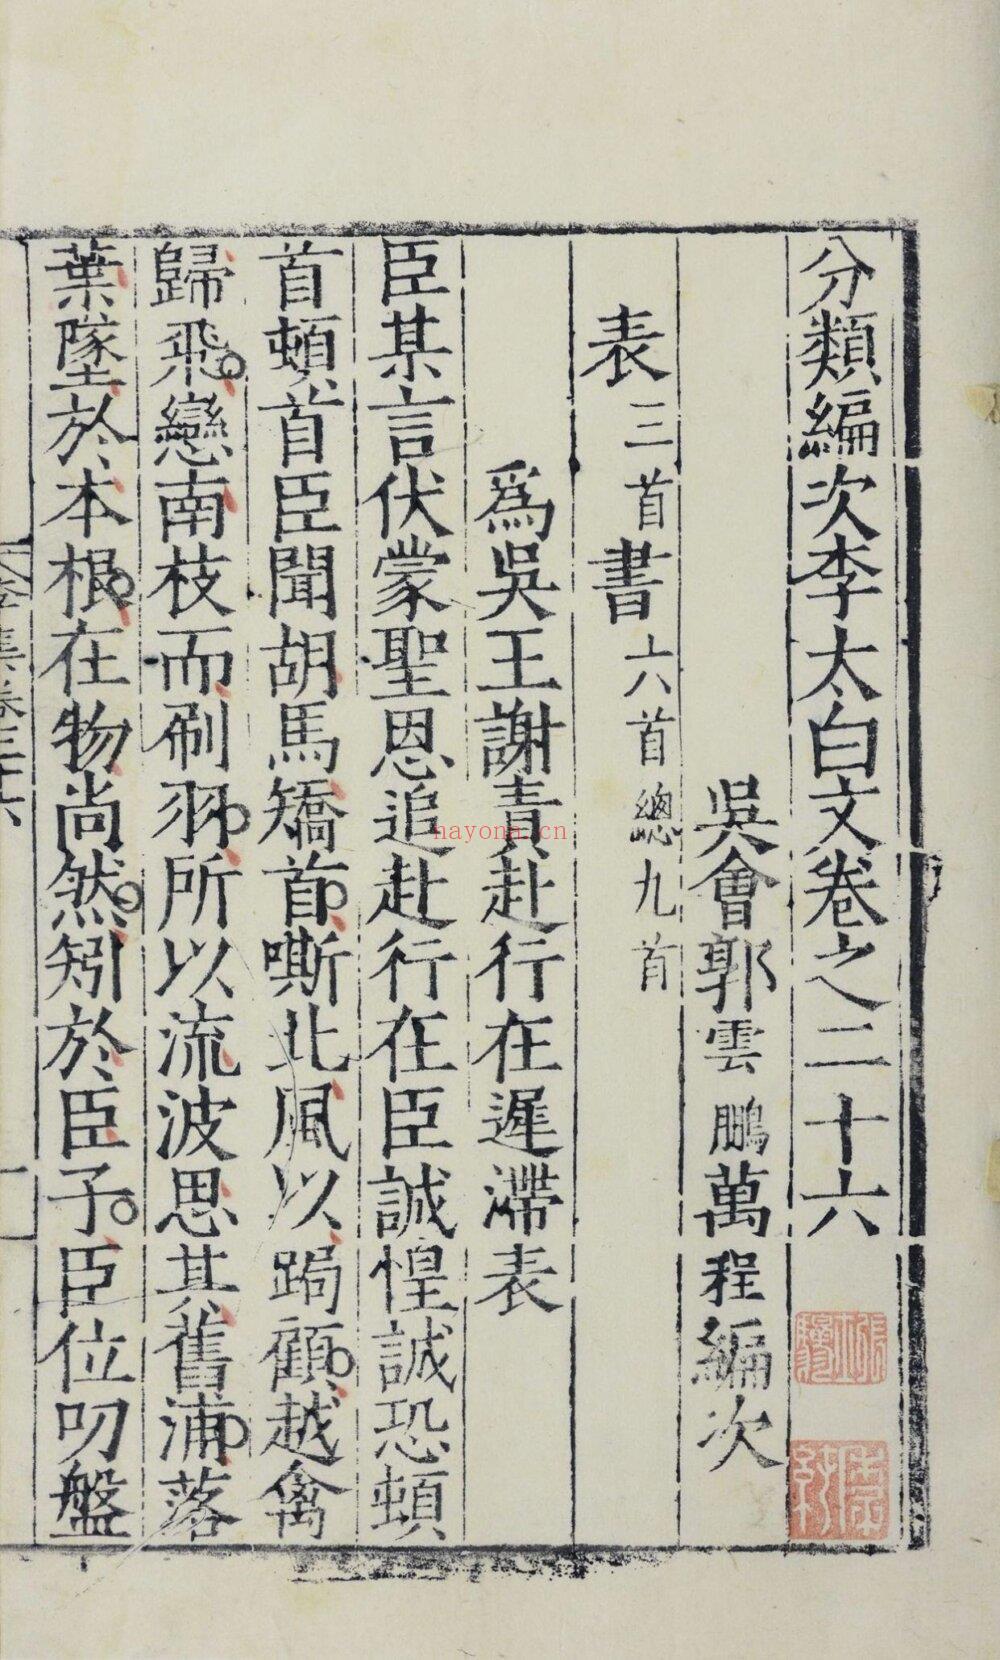 分類編次李太白文卷之二十六
吳會郭雲鵬萬程編次
表三首書六首總九首
爲吳王謝責赴行在遲滯表
臣某言伏蒙聖恩追赴行在臣誠惶誠恐頓
首頓首臣聞胡馬矯首嘶北風以跼顧越禽
歸飛戀南枝而刷羽所以流波思其舊浦落
葉墜於本根在物尚然矧於臣子臣位叨盤
nayona.cn